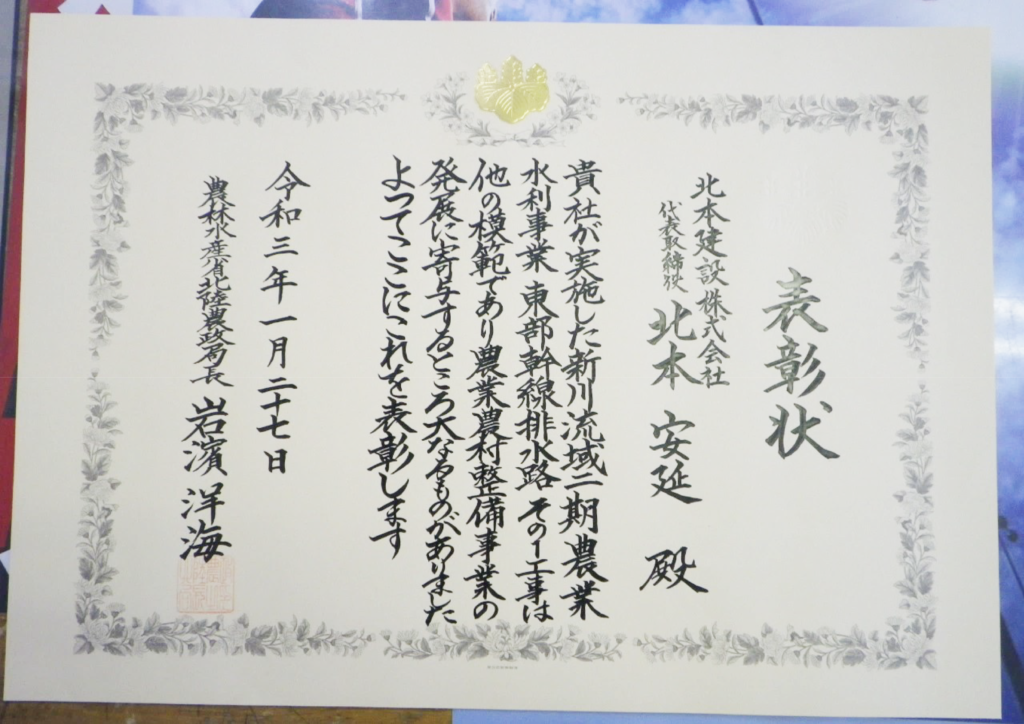 表彰状
北本建設株式会社
代表取締役 北本 安延 殿
貴社が実施した新川流域二期農業
水利事業 東部幹線排水路 その1工事は
他の模範であり農業農村整備事業の
発展に寄与するところ大なるものがありました
よってここにこれを表彰します
令和三年一月二十七日
農林水産省北陸農政局長 岩濱 洋海